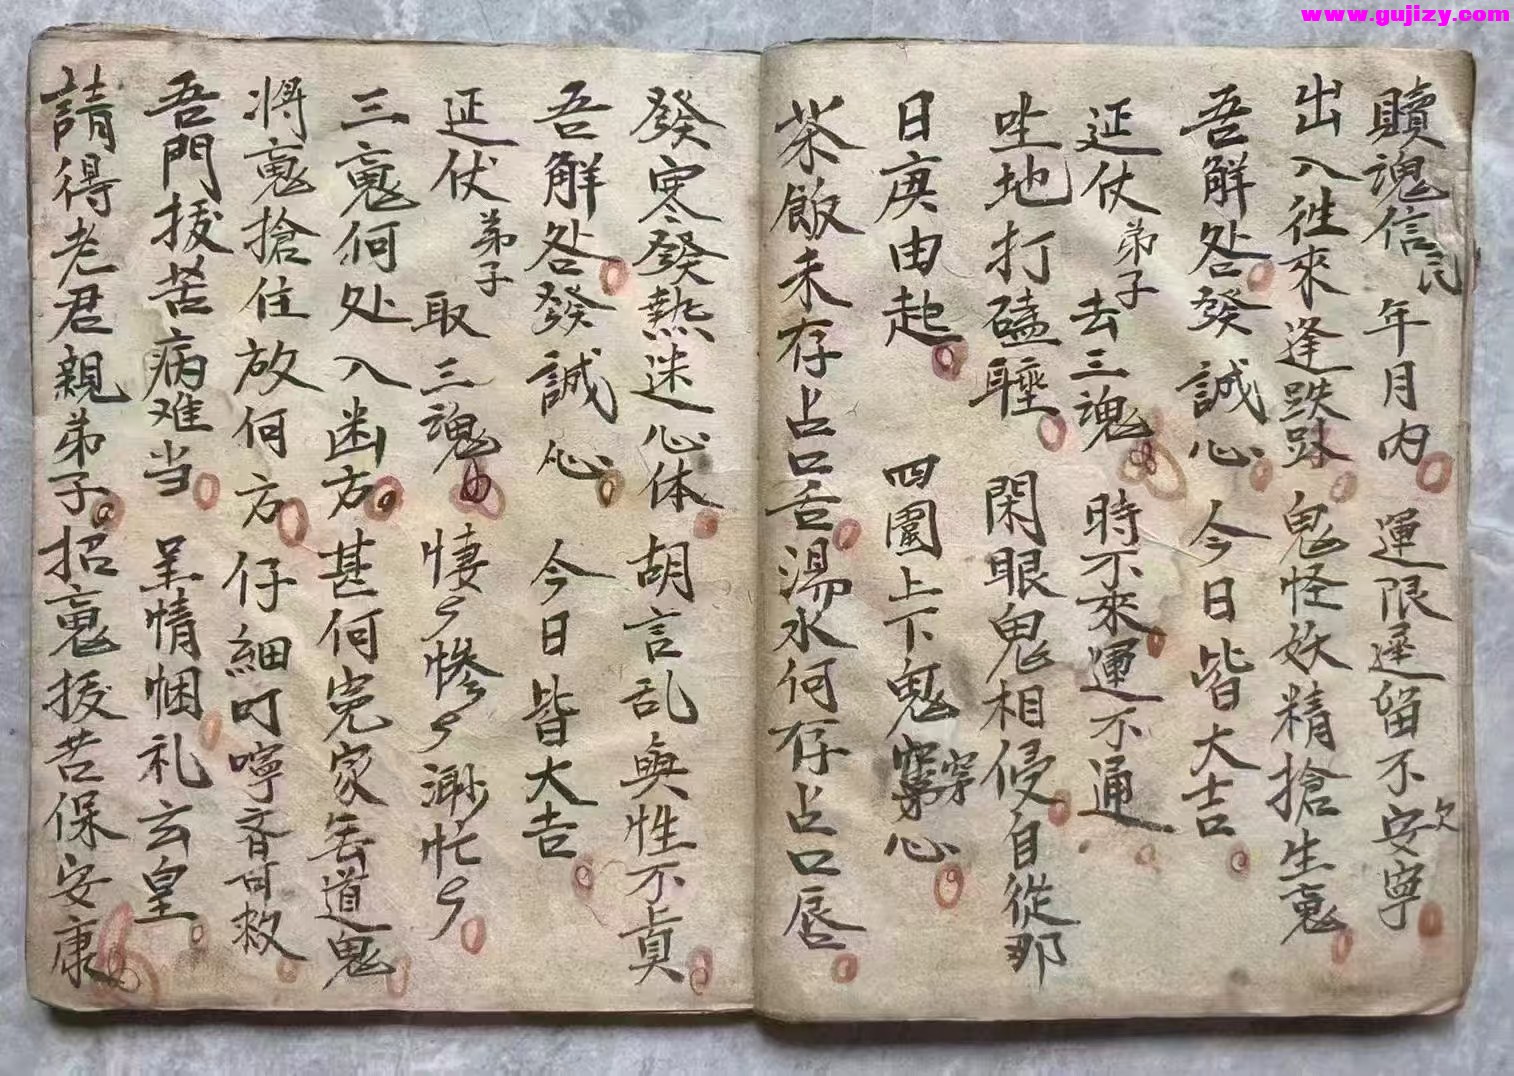 www.gujizy.com
贖魂信民 年月内 運限遲留不安寧 欠
出入往來逢跌 鬼怪妖精搶生䰟
吾觧処發誠心 今日皆大吉
延仗弟子去三魂 時不來運不通
坐地打磕睡 閑眼鬼相侵自從那
日庚由起 四圍上下鬼穿心
茶飯未存占口舌湯水何存占口唇
發寒發熱迷心体 胡言乱與性不貞
吾觧処發誠心 今日皆大吉
延仗弟子取三魂 悽〻慘〻渺忙〻
三䰟何处入幽方甚何寃家缶道鬼
將䰟搶住放何方仔細叮嚀可救
吾門拔苦病难当 呈情悃礼玄皇
請得老君親弟子招䰟拔苦保安康